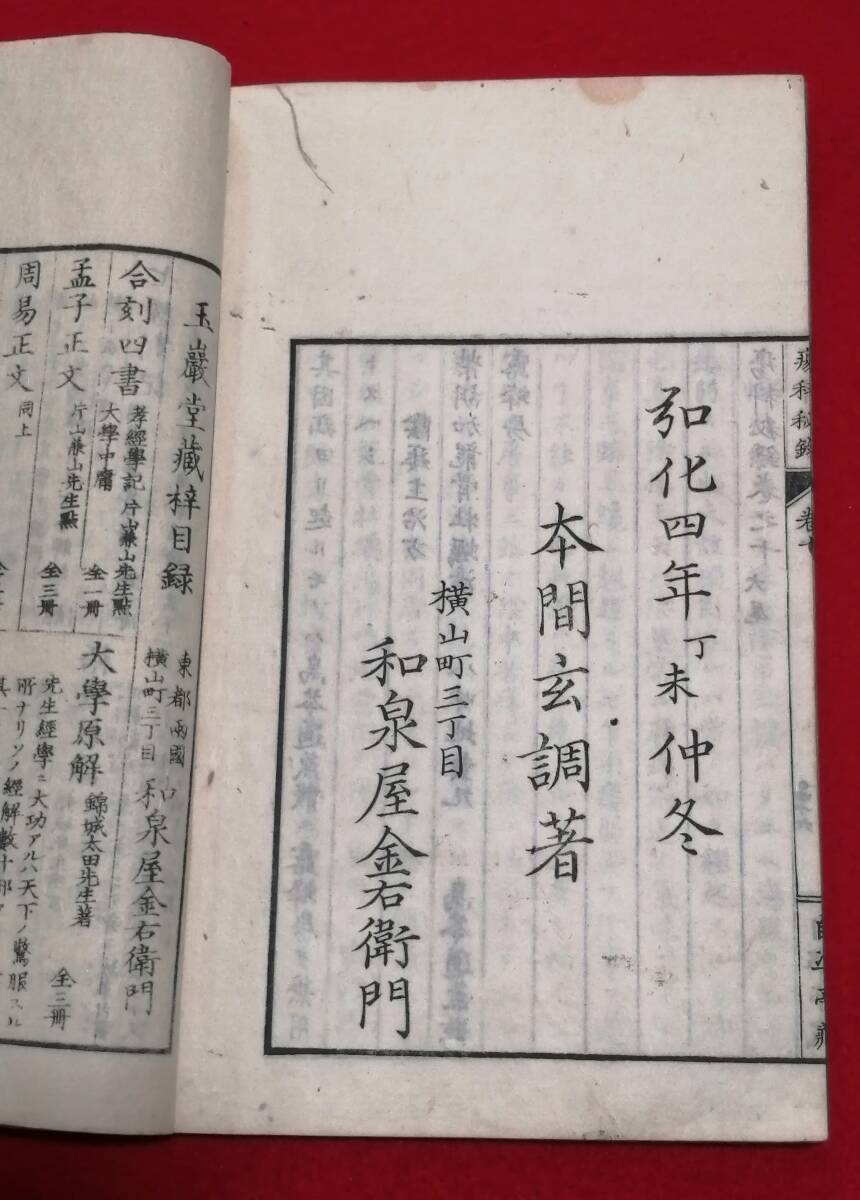 瘍科秘録
弘化四年丁未仲冬
本間玄調著
横山町三丁目
和泉屋金右衛門
玉巖堂藏梓目録
東都兩國
横山町三丁目
和泉屋金右衛門
合刻四書
孝經學記
大學中庸
片山兼山先生點
全一冊
孟子正文
片山兼山先生點
全三冊
周易正文
同上
大學原解
錦城太田先生著
全三冊
先生經學ニ大功アルハ天下ノ驚服スル
所ナリソノ經解數十部